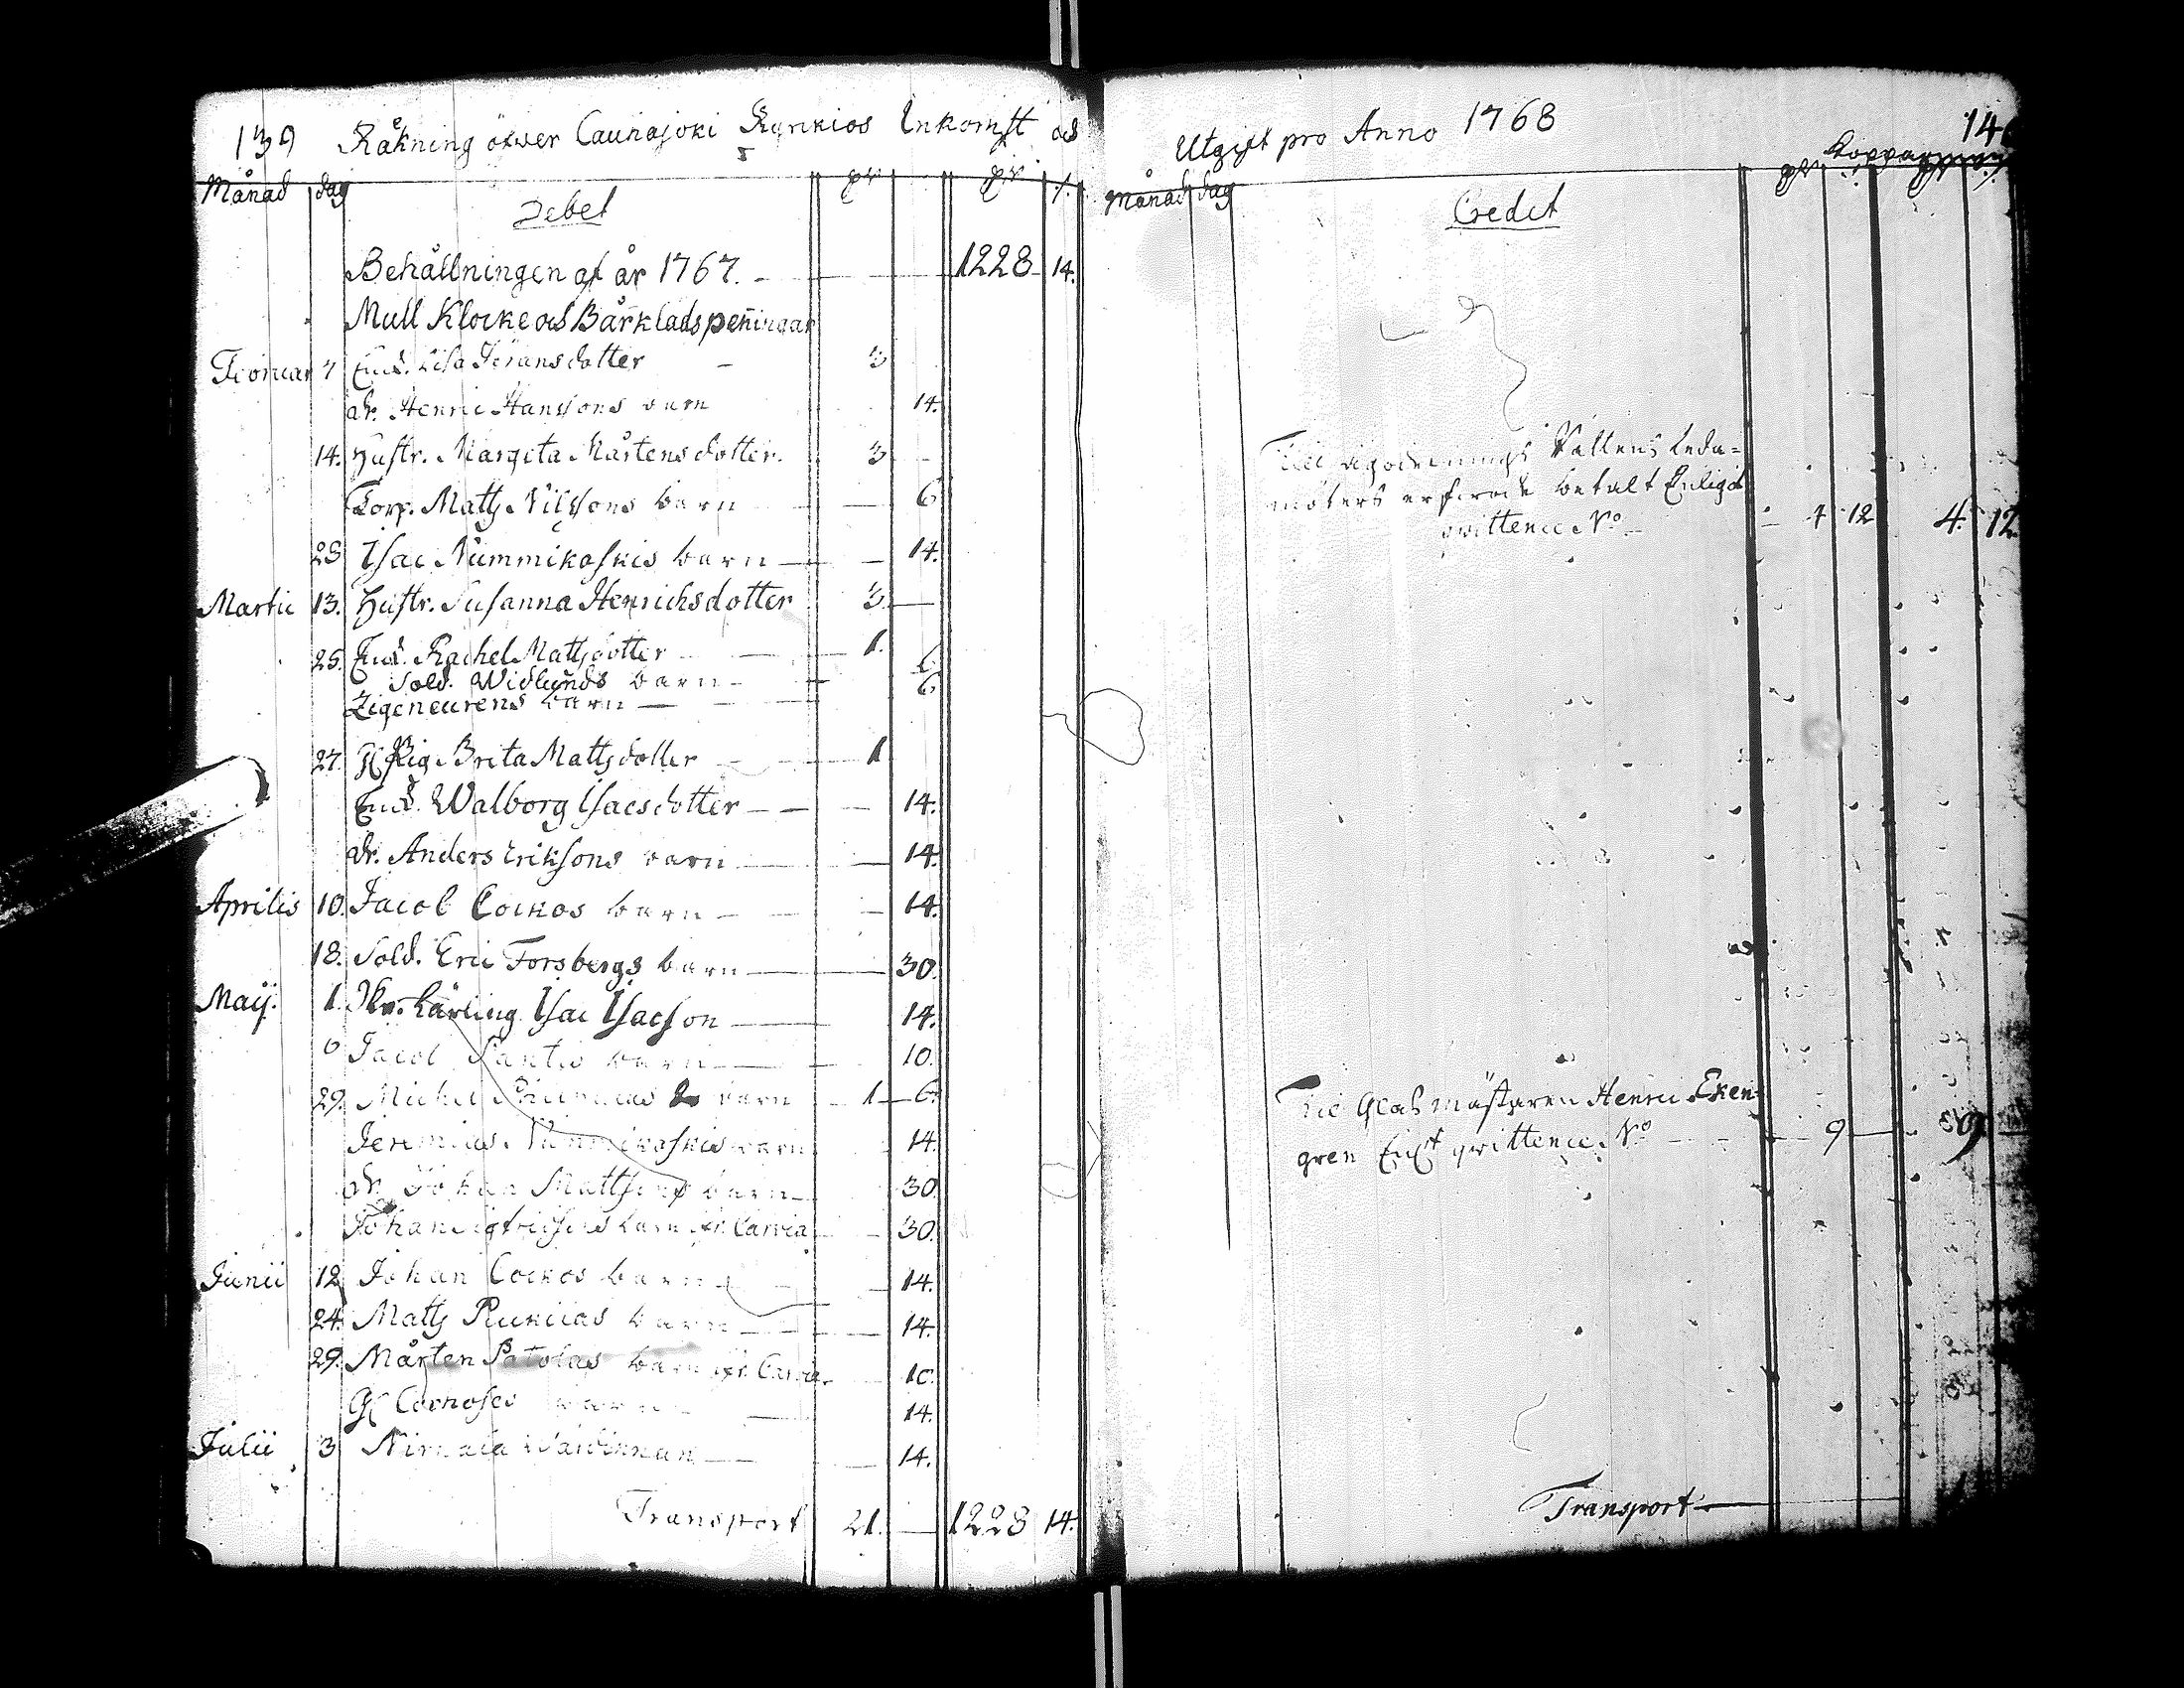 139 Räkning öfwer Caunajoki Kyrkios Inkomst och
Månad dag Debet
Behållningen af år 1767. 1228 14.
Mull Klocke och Bårklads peningar
Februar 7 Enk. Lisa Göransdotter 3
dr. Henric Hanssons barn 14.
14. Hustr. Margeta Mårtensdotter. 3
Torp. Matts Nilssons barn 6
28 Isac Nummikoskis barn 14.
Martii 13. Hustr. Susanna Henrichsdotter 3.
25. Enk. Rachel Mattsdotter 1.
Sold. Widlunds barn 6
Zigeneurens barn 6
27. Pig. Brita Mattsdotter 1
Enk. Walborg Isacsdotter 14.
dr. Anders Eriksons barn 14.
Aprilis 10. Jacob Cockos barn 14.
18. Sold. Eric Forsbergs barn 30.
Maij. 1. Kärling Isac Isacson 14.
6 Jacob barn 10.
29. Michel barn 1 6.
Jeremias Nummikoskis barn 14.
dr. Johan Mattsons barn 30.
Johan barn fr. Carvia 30.
Junii 12 Johan Cockos barn 14.
24. Matts barn 14.
29. Mårten Patolas barn fr. Carvia 10.
barn 14.
Julii 3 14.
Transport 21. 1228 14.
Utgift pro Anno 1768 140
Månad dag Credit
Wattens Leda=
möters betalt Enligit
qwittence No. 4 12 4. 12.
Til Glasmästaren Henric Eken=
gren Enl. qwittence No. 9 9
Transport